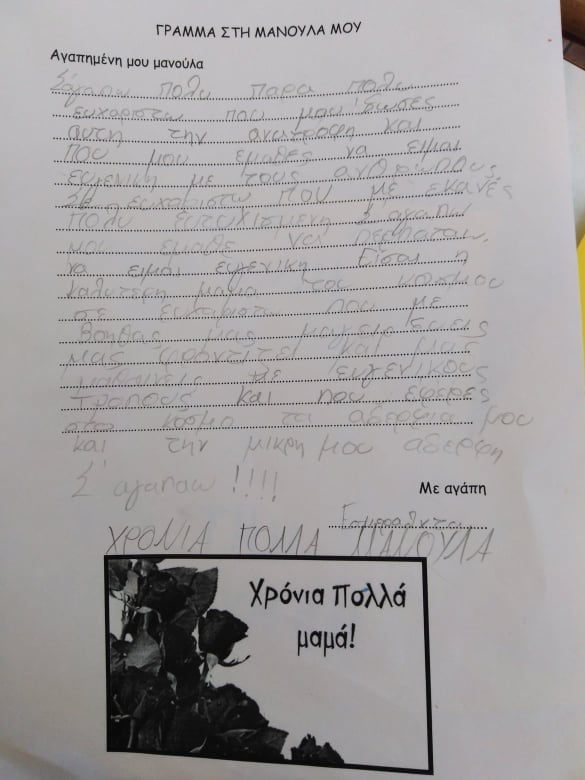 ΓΡΑΜΜΑ ΣΤΗ ΜΑΝΟΥΛΑ ΜΟΥ
Αγαπημένη μου μανούλα
Σ'αγαπω πολυ παρα πολυ
ευχαριστω που μου εδωσες
αυτη την ανατροφη και
που μου εμαθες να ειμαι
ευγενικη με τους ανθρωπους
Σε ευχαριστω που με εκανες
πολυ ευτυχισμενη Σ'αγαπω
μου εμαθε να περπαταω,
να ειμαι ευγενικη Εισαι η
καλυτερη μαμα του κοσμου
σε ευχαριστω που με
βοηθας μας μαγειρευεις
μας φροντιζει και μας
μαθαινεις με ευγενικους
τροπους και που εφερες
στο κοσμο τα αδερφια μου
και την μικρη μου αδερφη
Σ'αγαπαω !!!!
Με αγάπη
ΧΡΟΝΙΑ ΠΟΛΛΑ ΜΑΝΟΥΛΑ
Χρόνια Πολλά
μαμά!